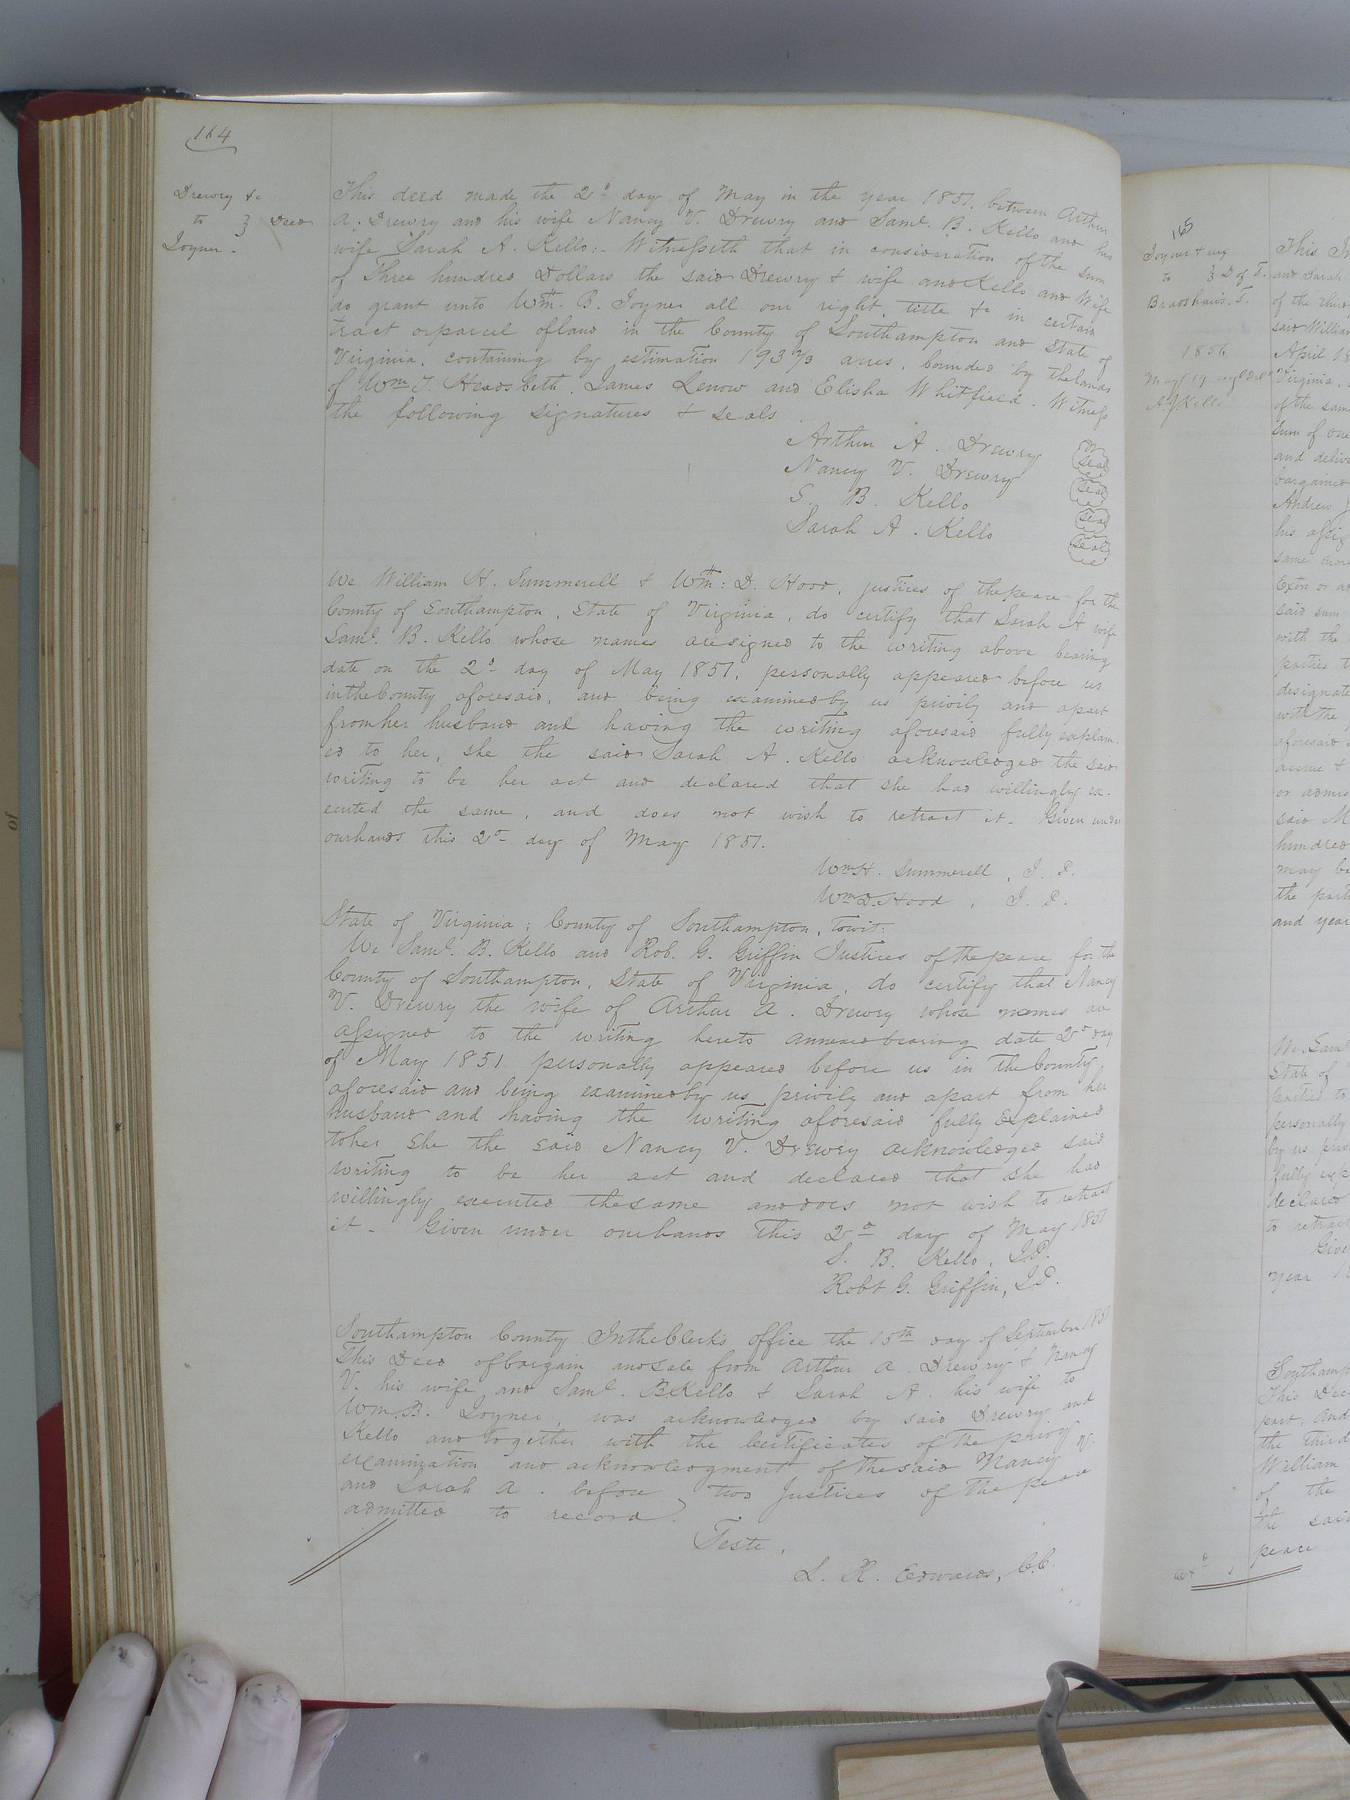 164
Drewry &c
to } Deed
Joyner.
This deed made the 2d day of May in the year 1851, between Arthur
A. Drewry and his wife Nancy V. Drewry and Saml. B. Kello and his
wife Sarah A. Kello: Witnesseth that in consideration of the sum
of Three hundred Dollars the said Drewry & wife and Kello and Wife
do grant unto Wm. B. Joyner all our right, title &c in certain
tract or parcel of land in the County of Southampton and State of
Virginia, containing by estimation 193 acres, bounded by the lands
of Wm. T. Headsbeth, James Lenow and Elisha Whitfield. Witness
the following signatures & seals
Arthur A. Drewry Seal
Nancy V. Drewry Seal
S. B. Kello Seal
Sarah A. Kello Seal
We William H. Summerell & Wm: D. Hood, justices of the peace for the
County of Southampton, State of Virginia, do certify that Sarah A wife
Saml. B. Kello whose names are signed to the writing above bearing
date on the 2d day of May 1851, personally appeared before us
in the County aforesaid, and being examined by us privily and apart
from her husband and having the writing aforesaid fully explain
ed to her, she the said Sarah A. Kello acknowledged the said
writing to be her act and declared that she had willingly ex-
ecuted the same, and does not wish to retract it. Given under
our hands this 2d day of May 1851.
Wm H. Summerell, J. P.
Wm D. Hood, J. P.
State of Virginia; County of Southampton, to wit:
We Saml. B. Kello and Rob. G. Griffin Justices of the peace for the
County of Southampton, State of Virginia, do certify that Nancy
V. Drewry the wife of Arthur A. Drewry whose names are
assigned to the writing hereto annexed bearing date 2d day
of May 1851 personally appeared before us in the County
aforesaid and being examined by us privily and apart from her
husband and having the writing aforesaid fully explained
to her she the said Nancy V. Drewry acknowledged said
writing to be her act and declared that she had
willingly executed the same and does not wish to retract
it. Given under our hands this 2d day of May 1851
S. B. Kello, J.P.
Robt G. Griffin, J.P.
Southampton County In the Clerk's office the 15th day of September 1851
This Deed of bargain and sale from Arthur A. Drewry & Nancy
V. his wife, and Saml. B Kello & Sarah A. his wife to
Wm. B. Joyner, was acknowledged by said Drewry and
Kello and together with the Certificates of the privy
examination and acknowledgment of the said Nancy V.
and Sarah A. before two Justices of the peace
admitted to record.
Teste,
L. R. Edwards, C.C.
165
Joyner & ux
to } D of T.
Bradshaw's T.
1856
A. J Kello
This
and Sarah
of the third
said William
April 18
Virginia,
of the same
sum of one
and delive
bargained
Andrew J
his assig
same
Exon or a
said sum
with the
parties t
designate
with the
aforesaid
accrue &
or admin
said M
hundred
may be
the part
and year
We Saml
State of
parties to
personally
by us priv
fully exp
declared
to retract
Give
year 18
Southamp
This Dee
part, and
the third
William
of the
the said
peace